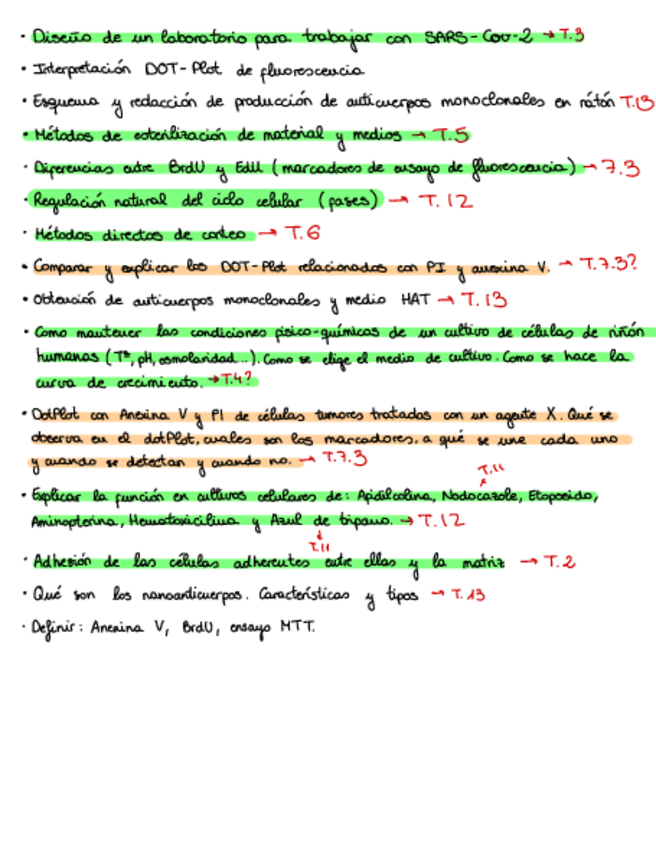 · Diseño de un laboratorio para trabajar con SARS-Cov-2 → T.3
· Interpretación DOT-Plot de fluorescencia
· Esquema y redacción de producción de anticuerpos monoclonales en ratón T.13
· Métodos de esterilización de material y medios → T.5
· Diferencias entre BrdU y EdU (marcadores de ensayo de fluorescencia) → 7.3
· Regulación natural del ciclo celular (fases) → T.12
· Métodos directos de conteo → T.6
· Comparar y explicar los DOT-Plot relacionados con PI y anexina V. → T.7.3?
· Obtención de anticuerpos monoclonales y medio HAT → T.13
· Como mantener las condiciones físico-químicas de un cultivo de células de riñón
humanas (Tª, pH, osmolaridad...). Como se elige el medio de cultivo. Como se hace la
curva de crecimiento. → T.4?
· DotPlot con Anexina V y PI de células tumores tratados con un agente X. Qué se
observa en el dotPlot, cuales son los marcadores, a qué se une cada uno
y cuando se detectan y cuando no. → T.7.3
T.11
· Explicar la función en cultivos celulares de: Afidilcolina, Nodocazole, Etoposido,
Aminopterina, Hemotoxicilina y Azul de tripano. → T.12
T.11
· Adhesión de las células adherentes entre ellas y la matriz → T.2
· Qué son los nanoanticuerpos. Características y tipos → T.13
· Definir: Anexina V, BrdU, ensayo MTT.